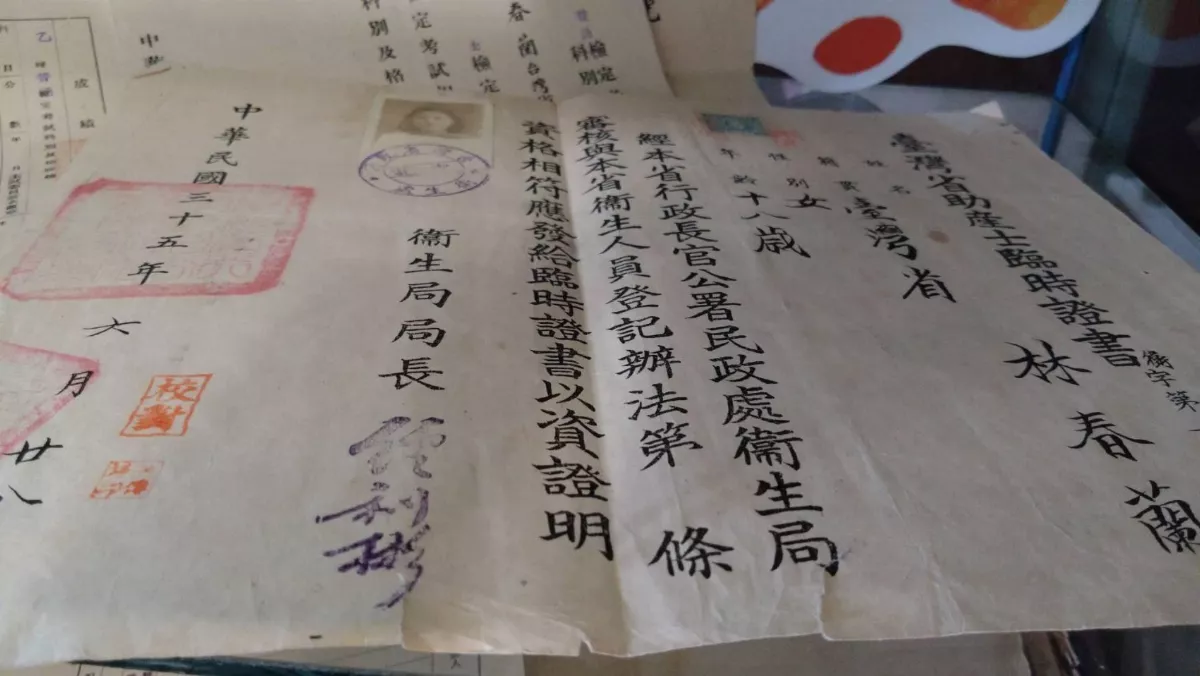 臺灣省助產士臨時證書
衛字第
姓名
林春蘭
籍貫
臺灣省
性別
女
年齡
十八歲
經本省行政長官公署民政處衞生局
審核與本省衞生人員登記辦法第 條
資格相符應發給臨時證書以資證明
衞生局局長
經利彬
中華民國三十五年六月廿八
校對
科別
檢定
春蘭台灣
檢定
定考試
科別及格
中華
成績
乙